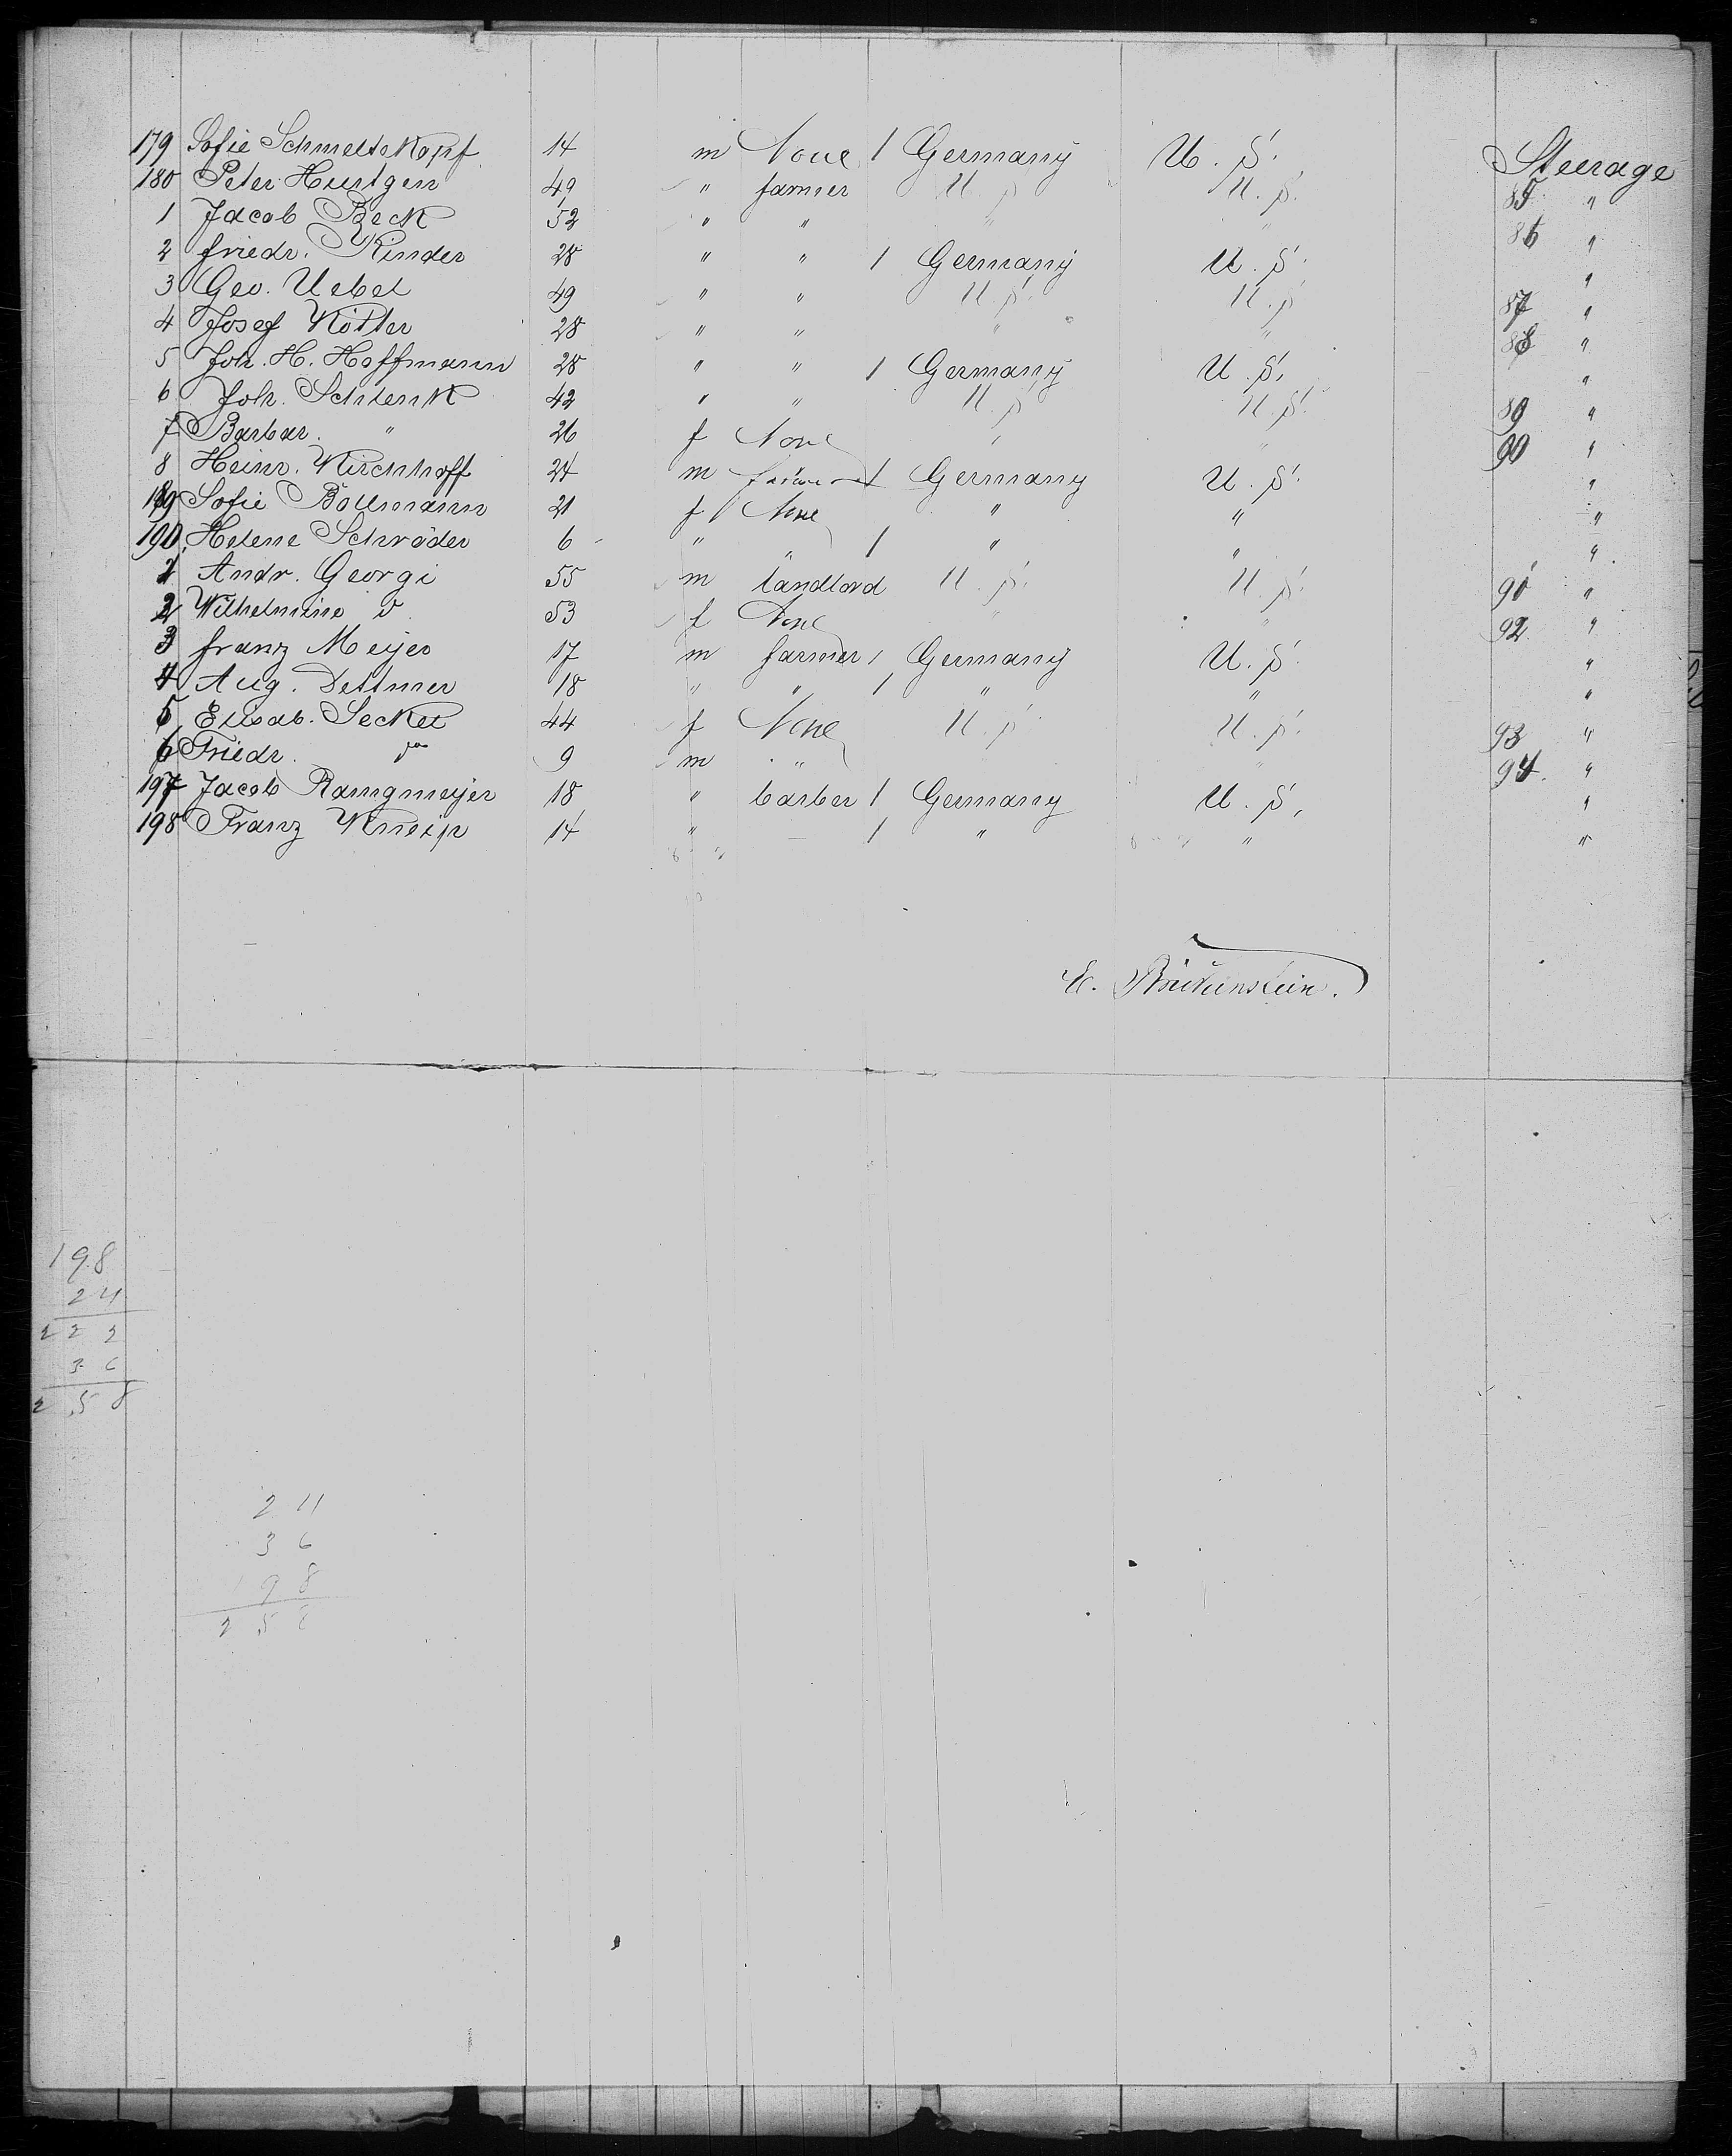 179 Sofie Schmeltekopf 14 m None 1 Germany U. S. Steerage
180 Peter Hurtgen 49 " farmer U. S. U. S. 85 "
1 Jacob Beck 52 " " " " 86 "
2 Friedr. Kinder 28 " " 1 Germany U. S. "
3 Geo. Uebel 49 " " U. S. U. S. 87 "
4 Josef Kötter 28 " " " " 88 "
5 Joh. H. Hoffmann 28 " " 1 Germany U. S. "
6 Joh. Schlenk 42 " " U. S. U. S. 89 "
7 Barbar. " 26 f None " " 90 "
8 Heinr. Kirchhoff 24 m farmer 1 Germany U. S. "
189 Sofie Bollmann 21 f None " " "
190 Helene Schröder 6 " " 1 " " "
1 Andr. Georgi 55 m landlord U. S. U. S. 91 "
2 Wilhelmine do 53 f None " " 92 "
3 Franz Meyer 17 m farmer 1 Germany U. S. "
4 Aug. Dettmer 18 " " 1 " " "
5 Elisab. Seckel 44 f None U. S. U. S. 93 "
6 Friedr. do 9 m " " " 94 "
197 Jacob Ramgmeyer 18 " barber 1 Germany U. S. "
198 Franz Kneip 14 " — 1 " " "
198
24
222
36
258
24
36
198
258